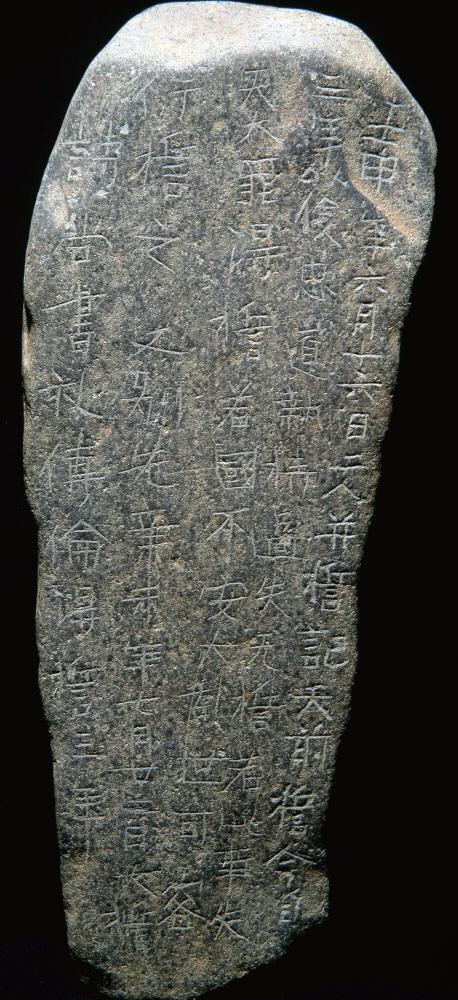 壬申年六月十六日二人并誓記天前誓今自
三年以後忠道執持過失无誓若此事失
天大罪淂誓若國不安大亂世可容
行誓之 又別先辛末年七月廿二日大誓
詩尚書礼傳倫淂誓三年